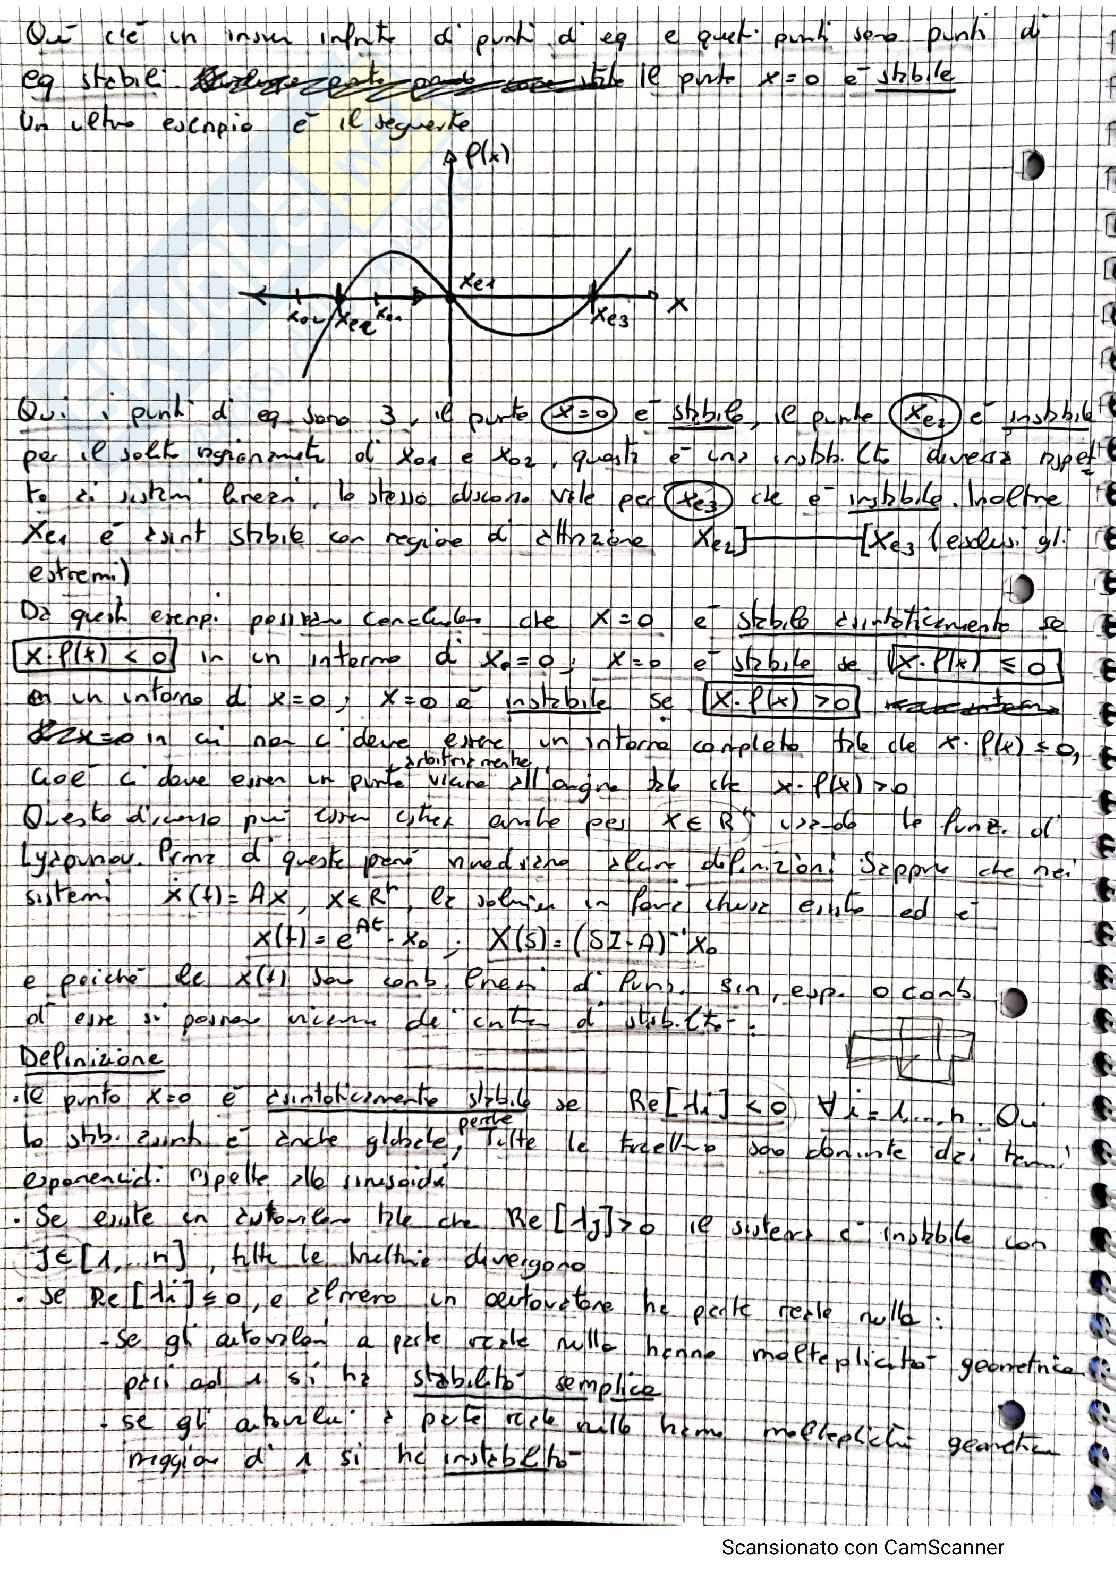 Qui c'è un insieme infinito di punti di eq e questi punti sono punti di
eq stabili. il punto x=0 è stabile
Un altro esempio è il seguente
f(x)
xe1
x02 xe2 x01 xe3 x
Qui i punti di eq sono 3, il punto x=0 è stabile, il punto xe2 è instabile
per il solito ragionamento di x01 e x02, questa è una instabilità diversa rispet
to ai sistemi lineari, lo stesso discorso vale per xe3 che è instabile. Inoltre
xe1 è asint stabile con regione di attrazione xe2] [xe3 (esclusi gli
estremi)
Da questi esempi possiam concludere che x=0 è stabile asintoticamente se
x·f(x) < 0 in un intorno di x=0; x=0 è stabile se x·f(x) ≤ 0
in un intorno di x=0; x=0 è instabile se x·f(x) > 0
x=0 in cui non ci deve essere un intorno completo tale che x·f(x) ≤ 0,
cioè ci deve esser un punto arbitrariamente vicino all'origine tale che x·f(x) > 0
Questo discorso può esser esteso anche per x∈Rⁿ usando le funz. di
Lyapunov. Prima di questo però rivediamo alcune definizioni. Seppure che nei
sistemi ẋ(t)=Ax, x∈Rⁿ, la soluzion in forma chiusa esiste ed è
x(t) = e^At · x0 ; X(s) = (SI-A)⁻¹ x0
e poiché le x(t) son comb. lineari di funz. sin, esp. o comb
di esse si posson ricavare dei criteri di stabilità:
Definizione
·il punto x=0 è asintoticamente stabile se Re[λi] < 0 ∀i=1,...,n. Qui
la stab. asint è anche globale, perché tutte le traiettorie son dominate dai termini
esponenziali rispetto alle sinusoidi
· Se esiste un autovalore tale che Re[λj]>0 il sistema è instabile con
J∈[1,...n], tutte le traiettorie divergono
· Se Re[λi]≤0, e almeno un autovalore ha parte reale nulla:
- Se gli autovalori a parte reale nulla hanno molteplicità geometrica
pari ad 1 si ha stabilità semplice
- se gli autovalori a parte reale nulla hanno molteplicità geometrica
maggiore di 1 si ha instabilità
Scansionato con CamScanner